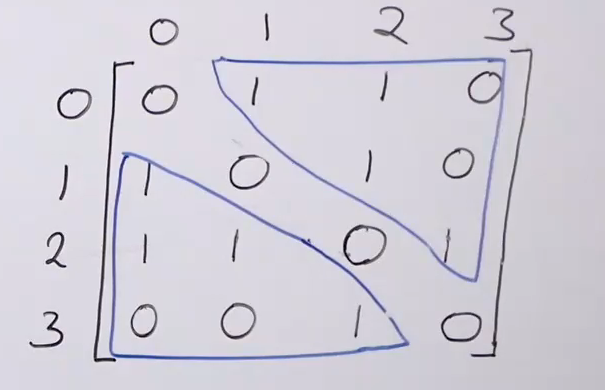 0 1 2 3
0 0 1 1 0
1 1 0 1 0
2 1 1 0 1
3 0 0 1 0